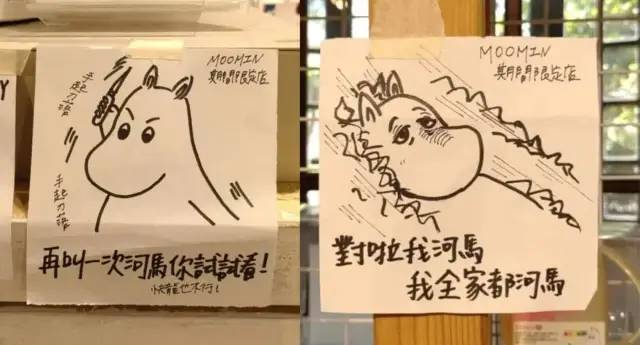 MOOMIN
期間限定店
手起刀落
手起刀落
再叫一次河馬你試試看！
快龍也不行！
MOOMIN
期間限定店
對啦我河馬
我全家都河馬